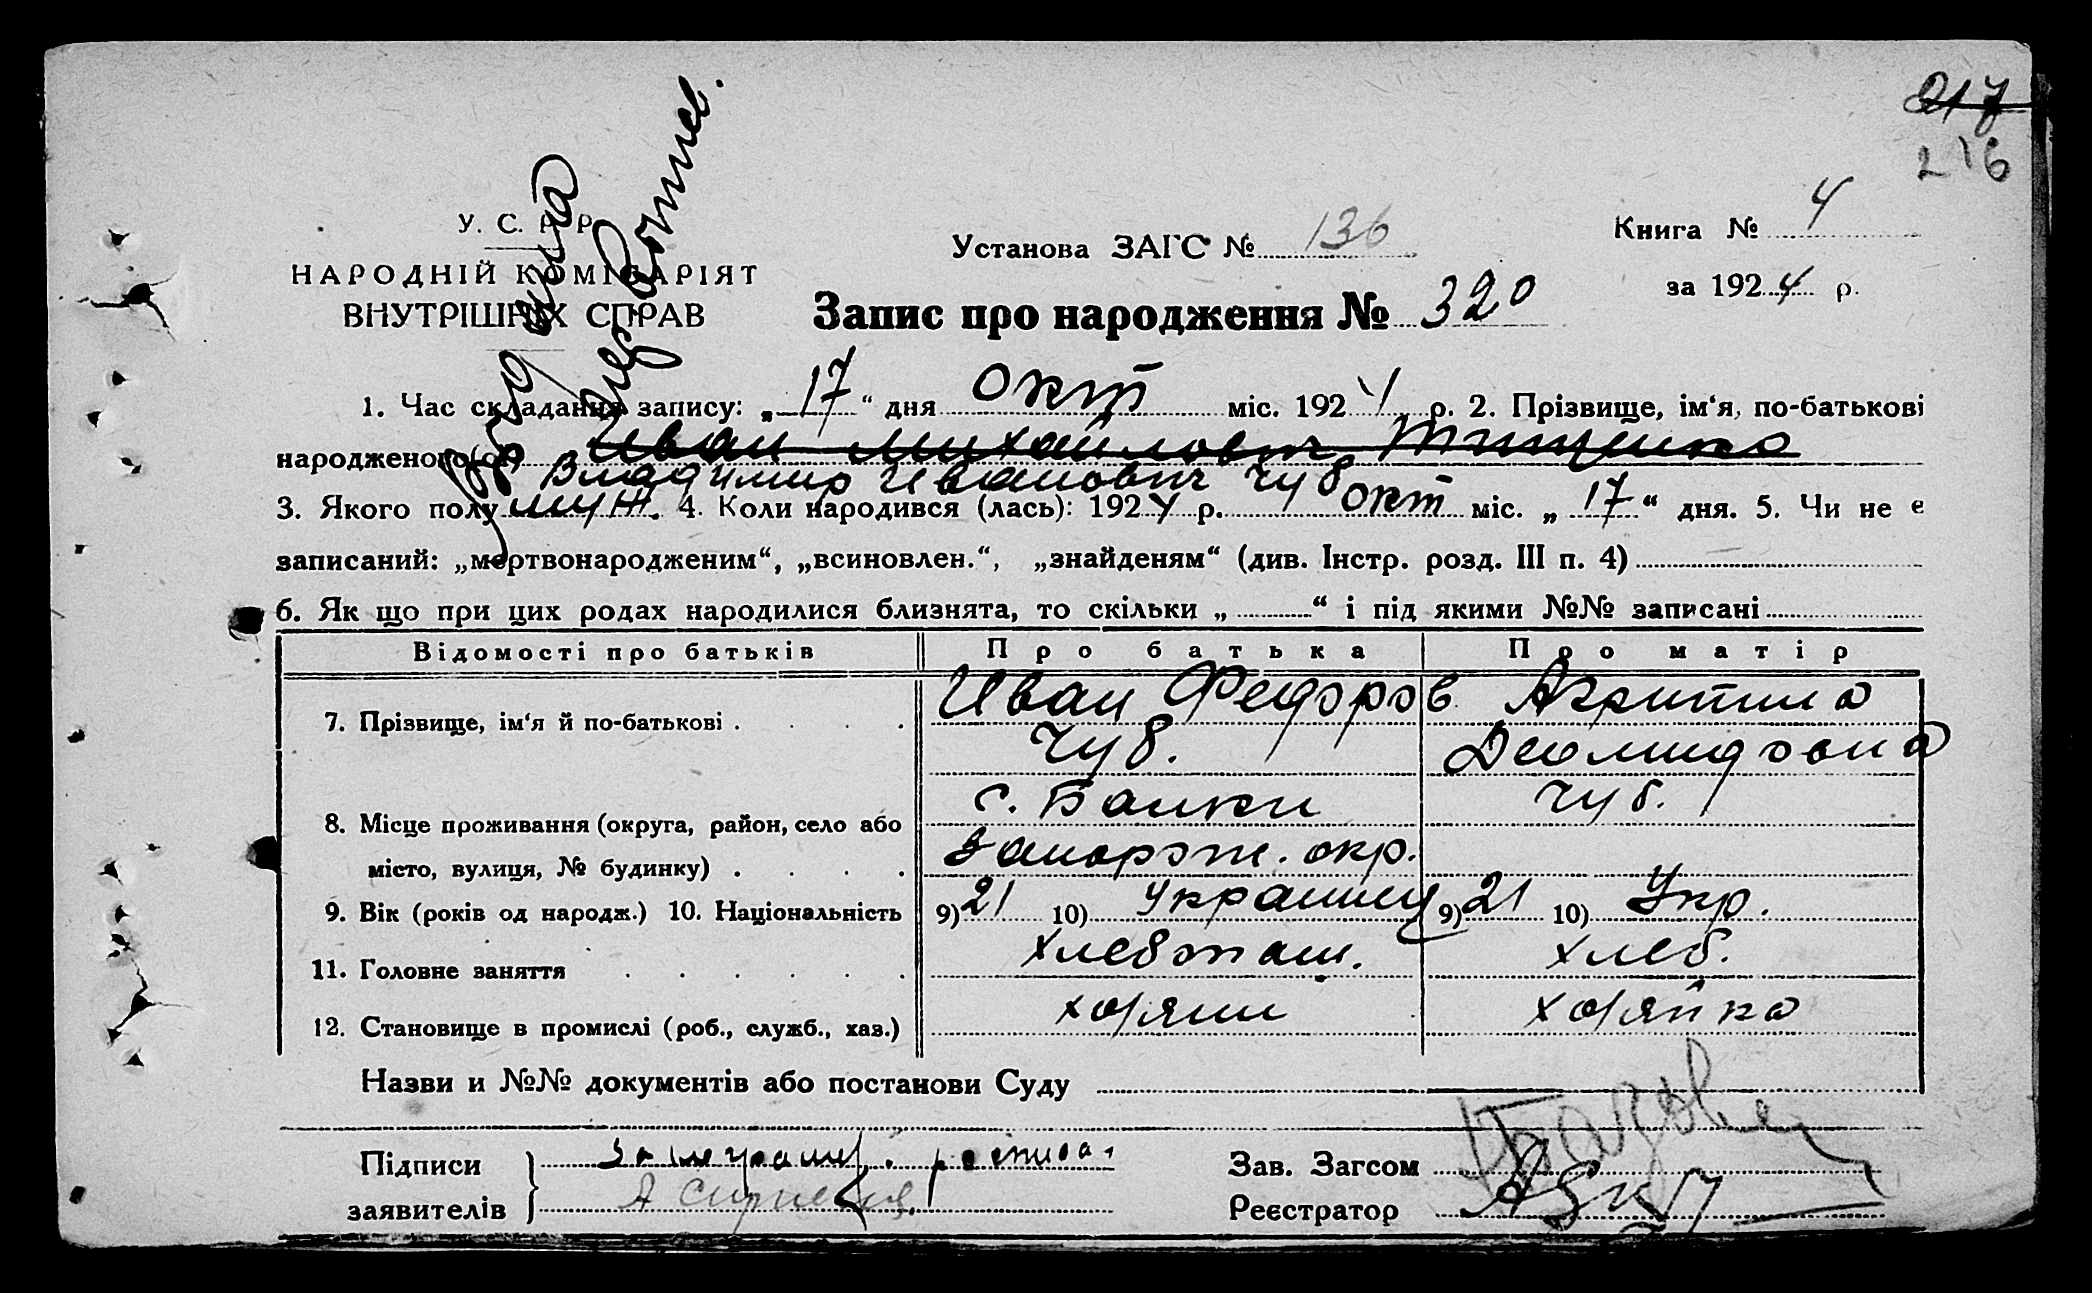 217
216
У. С. Р. Р.
НАРОДНІЙ КОМІСАРІЯТ
ВНУТРІШНІХ СПРАВ
Установа ЗАГС № 136
Книга № 4
за 1924 р.
Запис про народження № 320
1. Час складання запису: „17“ дня окт міс. 1924 р. 2. Прізвище, ім‘я, по-батькові
народженого(ої) Иван Михайлович Тищенко
Владимир Иванович Чуб
3. Якого полу муж. 4. Коли народився (лась): 1924 р. окт міс. „17“ дня. 5. Чи не є
записаний: „мертвонародженим“, „всиновлен.“, „знайденям“ (див. Інстр. розд. III п. 4)
6. Як що при цих родах народилися близнята, то скільки „ “ і під якими №№ записані
Відомості про батьків Про батька Про матір
7. Прізвище, ім‘я й по-батькові Иван Федоров Чуб.
Чуб.
8. Місце проживання (округа, район, село або місто, вулиця, № будинку) с. Балки
Запорож. окр.
9. Вік (років од народж.) 10. Національність 9) 21 10) Украинец 9) 21 10) Укр.
11. Головне заняття хлебопаш. хлеб.
12. Становище в промислі (роб., служб., хаз.) хозяин хозяйка
Назви и №№ документів або постанови Суду
Підписи
заявителів
Зав. Загсом
Реєстратор